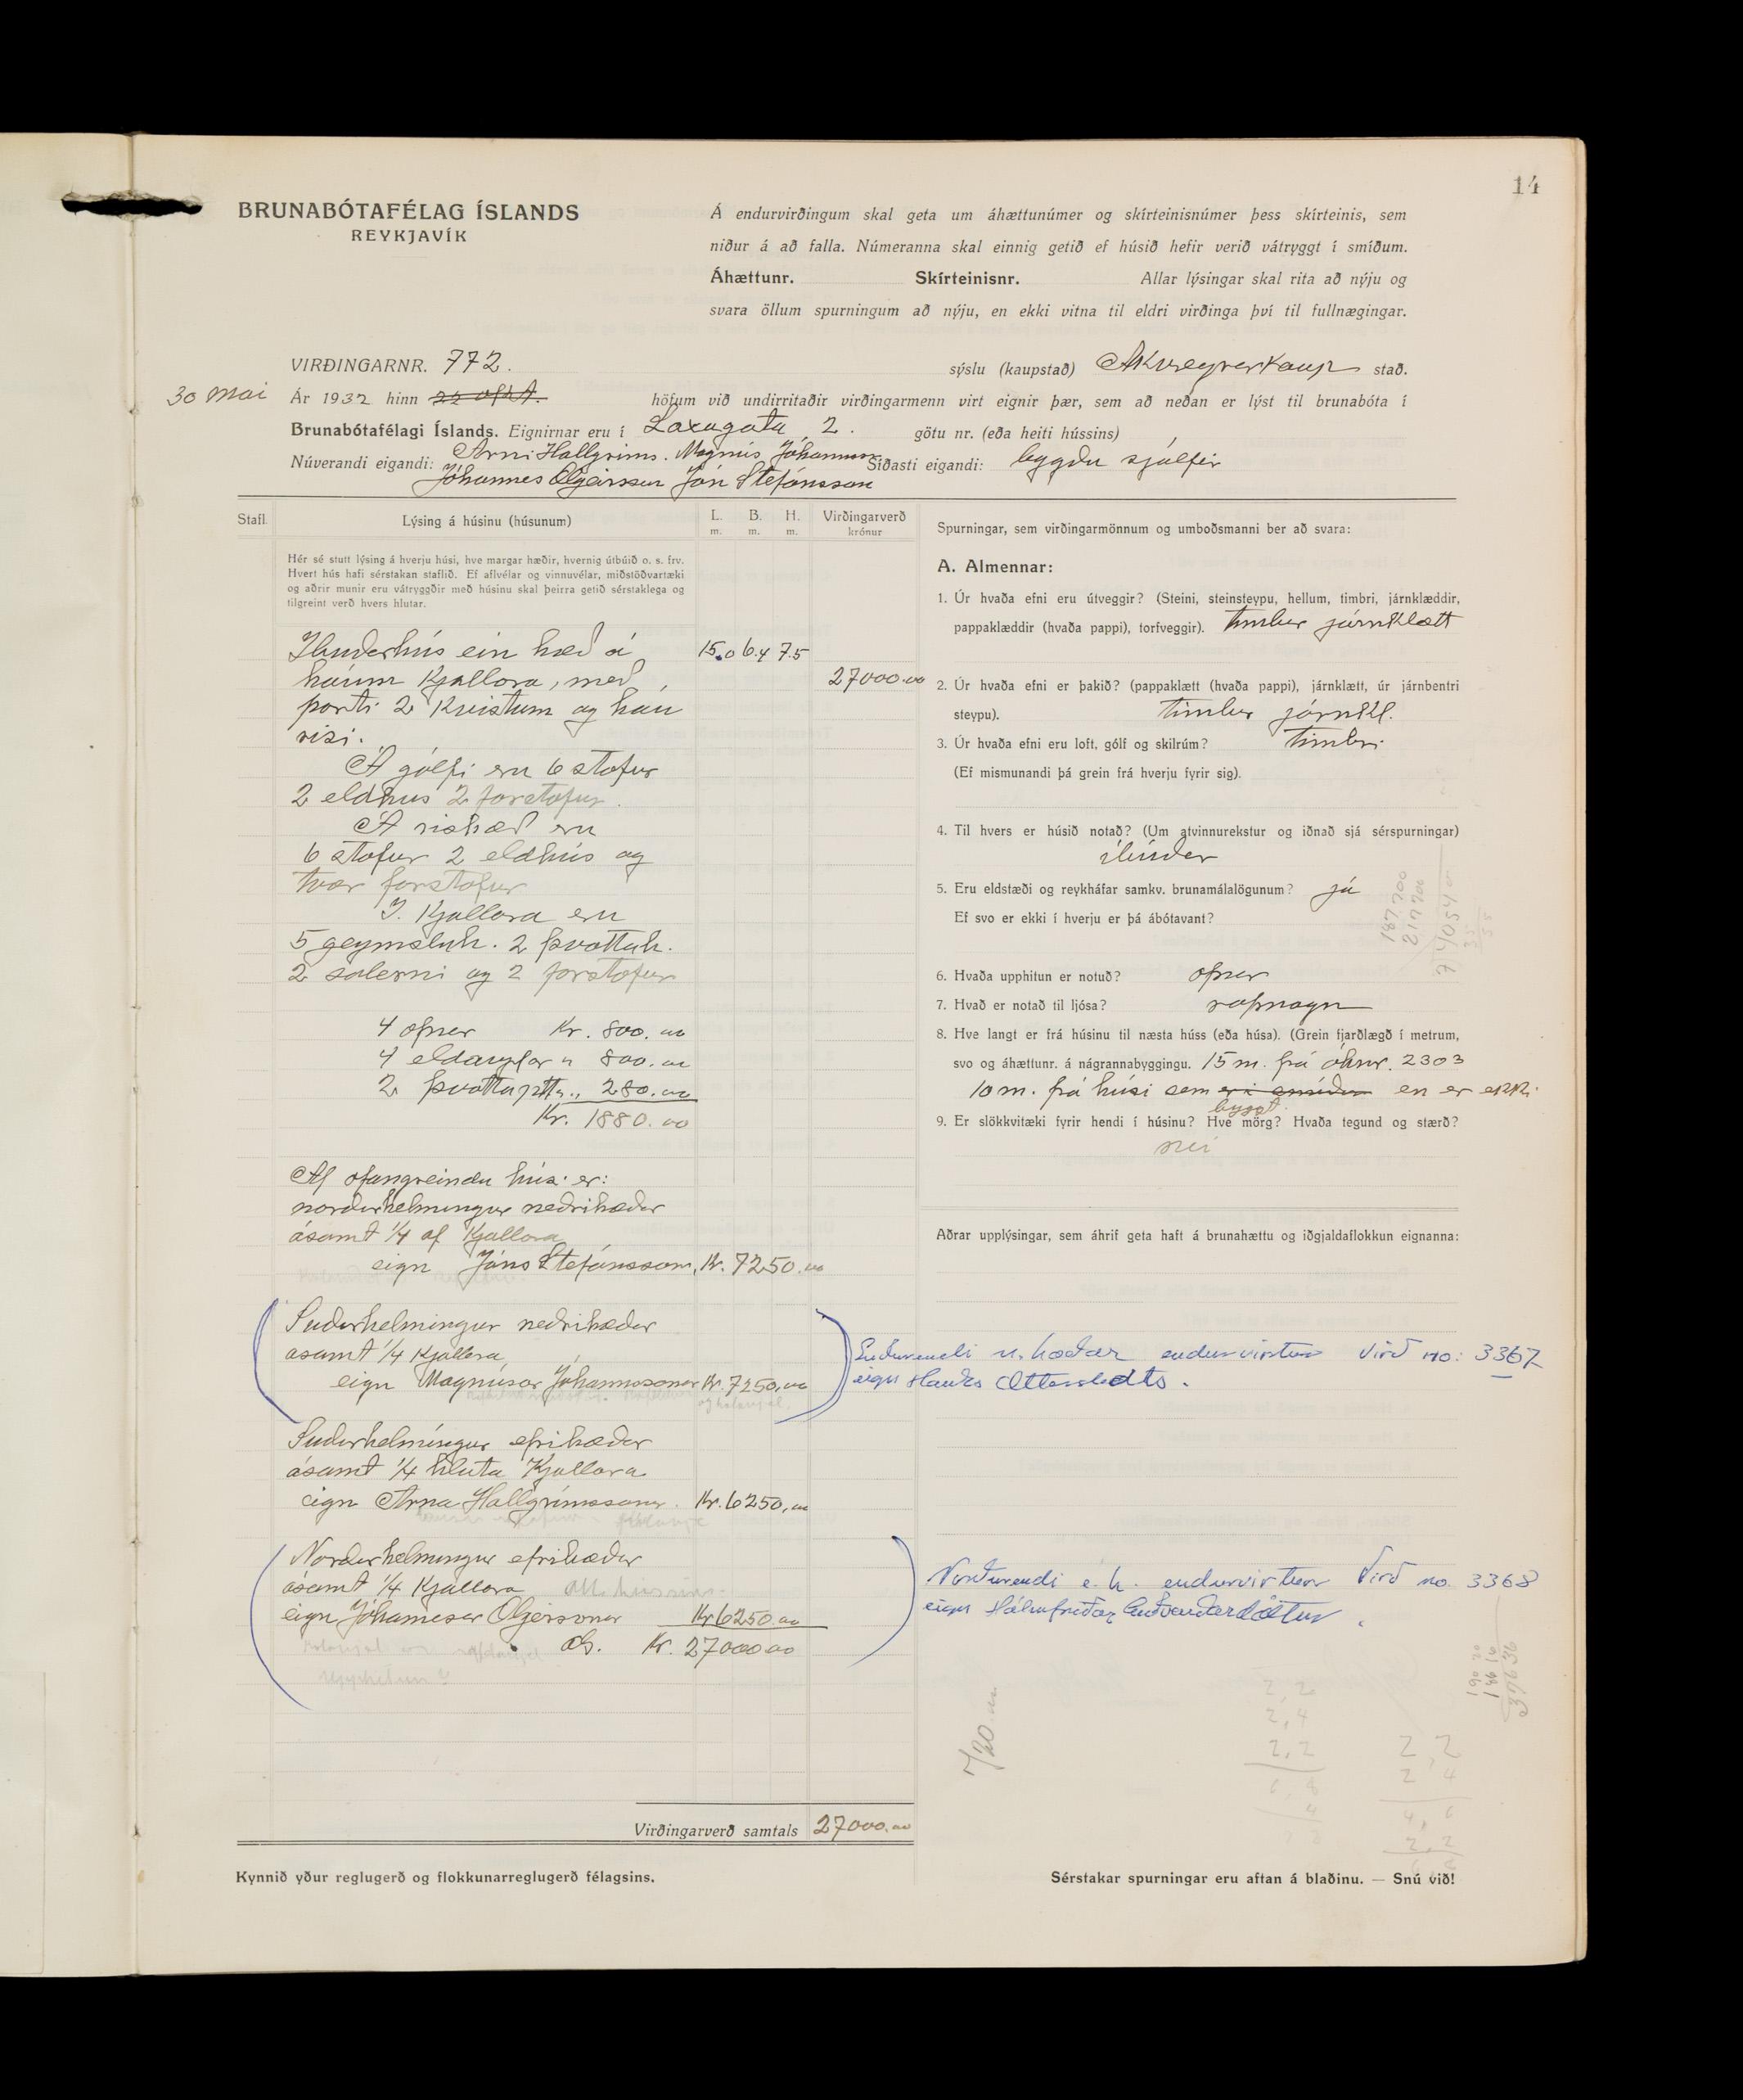 14
BRUNABÓTAFÉLAG ÍSLANDS
REYKJAVÍK
Á endurvirðingum skal geta um áhættunúmer og skírteinisnúmer þess skírteinis, sem
niður á að falla. Númeranna skal einnig getið ef húsið hefir verið vátryggt í smíðum.
Áhættunr. Skírteinisnr. Allar lýsingar skal rita að nýju og
svara öllum spurningum að nýju, en ekki vitna til eldri virðinga því til fullnægingar.
VIRÐINGARNR. 772. sýslu (kaupstað) Akureyrarkaup stað.
30 mai Ár 1932 hinn höfum við undirritaðir virðingarmenn virt eignir þær, sem að neðan er lýst til brunabóta í
Brunabótafélagi Íslands. Eignirnar eru í Laxagata 2. götu nr. (eða heiti hússins)
Núverandi eigandi: Árni Hallgríms. Magnús Jóhannss. Síðasti eigandi: bygðu sjálfir
Jóhannes Olgeirsson Jón Stefánsson
Stafl. Lýsing á húsinu (húsunum) L. m. B. m. H. m. Virðingarverð krónur
Hér sé stutt lýsing á hverju húsi, hve margar hæðir, hvernig útbúið o. s. frv.
Hvert hús hafi sérstakan staflið. Ef aflvélar og vinnuvélar, miðstöðvartæki
og aðrir munir eru vátryggðir með húsinu skal þeirra getið sérstaklega og
tilgreint verð hvers hlutar.
Íbúðarhús ein hæð á 15.0 6.4 7.5
háum kjallara, með 27000.00
porti 2 kvistum og háu
risi.
Á gólfi eru 6 stofur
2 eldhús 2 forstofur.
Á rishæð eru
6 stofur 2 eldhús og
tvær forstofur
Í Kjallara eru
5 geymsluh. 2 þvottah.
2 salerni og 2 forstofur
4 ofnar Kr. 800.00
4 eldavjelar " 800.00
2 þvottapottar " 280.00
Kr. 1880.00
Af ofangreindu húsi er:
norðurhelmingur neðrihæðar
ásamt 1/4 af Kjallara
eign Jóns Stefánssonar, Kr. 7250.00
Suðurhelmingur neðrihæðar
ásamt 1/4 Kjallara
eign Magnúsar Jóhannssonar Kr. 7250,00
Suðurhelmingur efrihæðar
ásamt 1/4 hluta Kjallara
eign Árna Hallgrímssonar. Kr. 6250,00
Norðurhelmingur efrihæðar
ásamt 1/4 Kjallara
eign Jóhannesar Olgeirssonar Kr 6250.00
Kr. 27000.00
Virðingarverð samtals 27000.00
Spurningar, sem virðingarmönnum og umboðsmanni ber að svara:
A. Almennar:
1. Úr hvaða efni eru útveggir? (Steini, steinsteypu, hellum, timbri, járnklæddir,
pappaklæddir (hvaða pappi), torfveggir). timbur járnklætt
2. Úr hvaða efni er þakið? (pappaklætt (hvaða pappi), járnklætt, úr járnbentri
steypu). timbur járnkl.
3. Úr hvaða efni eru loft, gólf og skilrúm? timbri
(Ef mismunandi þá grein frá hverju fyrir sig).
4. Til hvers er húsið notað? (Um atvinnurekstur og iðnað sjá sérspurningar)
íbúðar
5. Eru eldstæði og reykháfar samkv. brunamálalögunum? já
Ef svo er ekki í hverju er þá ábótavant?
6. Hvaða upphitun er notuð? ofnar
7. Hvað er notað til ljósa? rafmagn
8. Hve langt er frá húsinu til næsta húss (eða húsa). (Grein fjarðlægð í metrum,
svo og áhættunr. á nágrannabyggingu. 15 m. frá áhnr. 2303
10 m. frá húsi sem er í smíðum en er ekki
bygst.
9. Er slökkvitæki fyrir hendi í húsinu? Hve mörg? Hvaða tegund og stærð?
nei
Aðrar upplýsingar, sem áhrif geta haft á brunahættu og iðgjaldaflokkun eignanna:
Suðurendi n. hæðar endurvirtur Virð no: 3367
eign Hauks Otterstedts.
Norðurendi e. h. endurvirtur Virð no. 3368
eign Hólmfríðar
2,2
2,4
2,2
2,2
2,4
4,6
2,2
Kynnið yður reglugerð og flokkunarreglugerð félagsins.
Sérstakar spurningar eru aftan á blaðinu. — Snú við!